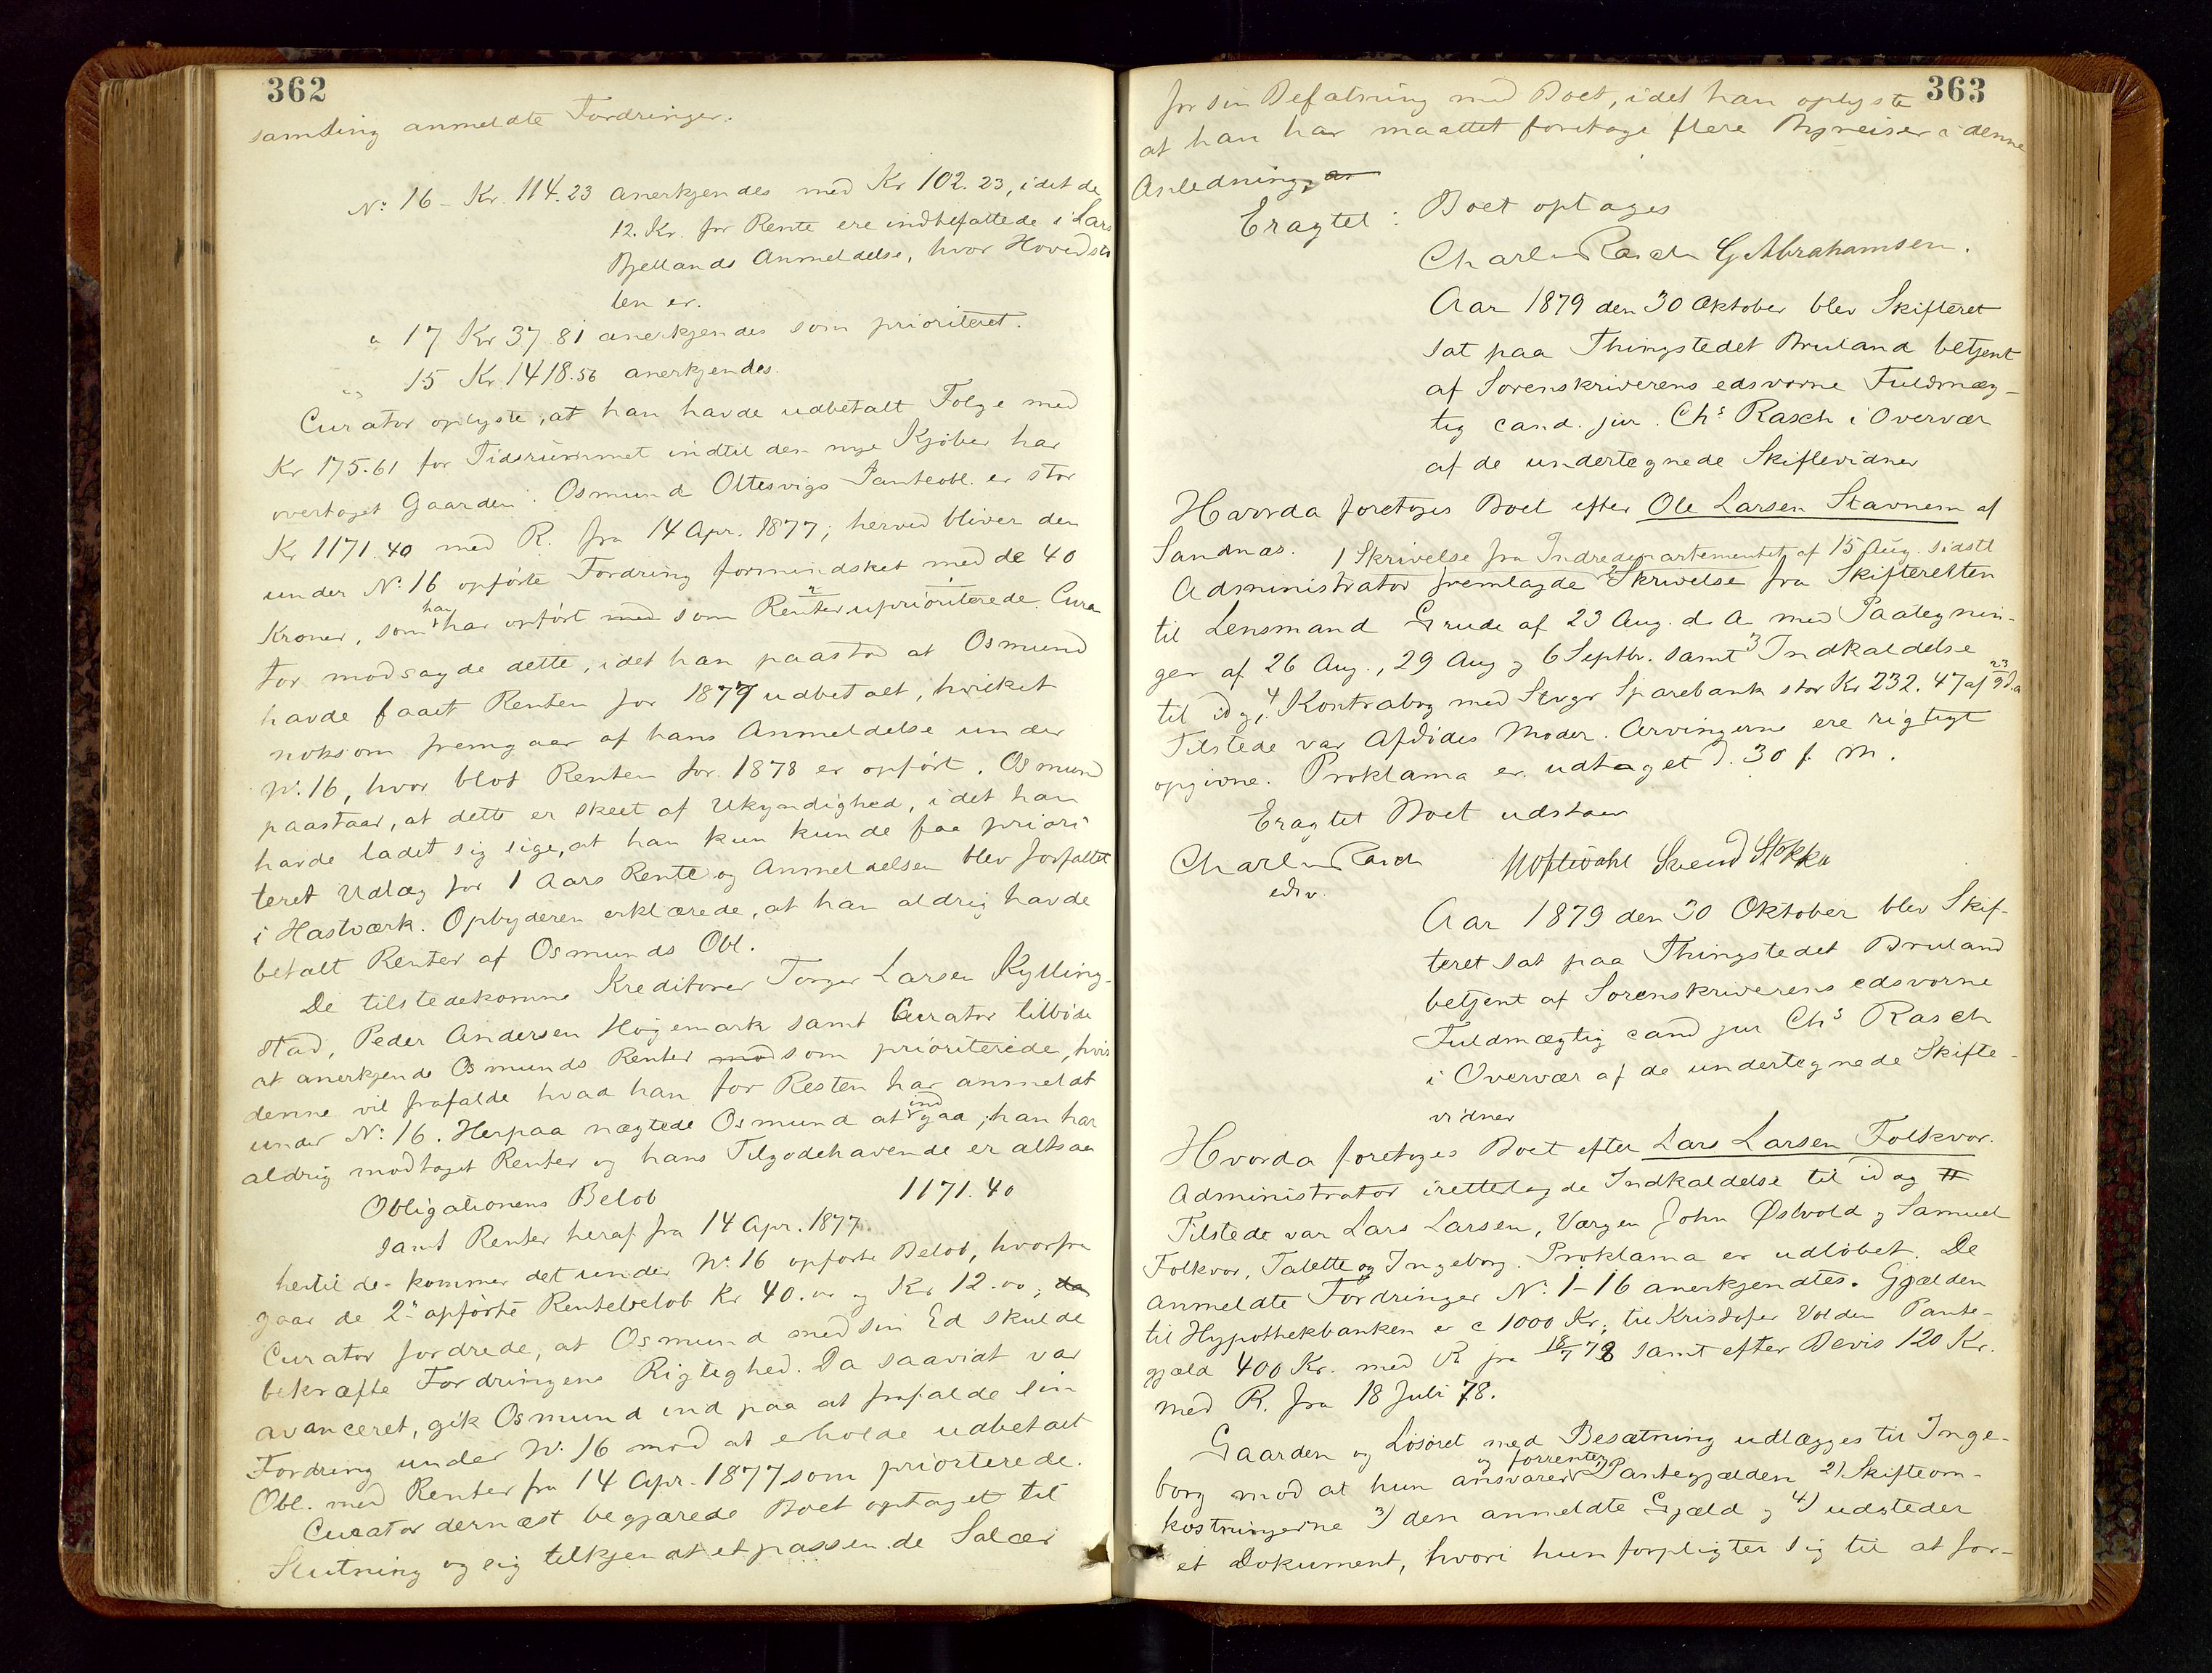 362
samling anmeldte Fordringer.
No 16 - Kr. 114.23 anerkjendes med Kr 102.23, idet de
12. Kr. for Rente ere indbefattede i Lars
Bjellands Anmeldelse, hvor Hovedsto
len er.
" 17 Kr 37 81 anerkjendes som prioriteret.
" 15 Kr. 1418.56 anerkjendes.
Curator oplyste, at han havde udbetalt Følge med
Kr 175.61 for Tidsrummet indtil den nye Kjøber har
overtaget Gaarden. Osmund Ottesvigs Panteobl. er stor
Kr 1171.40 med R. fra 14 Apr. 1877; herved bliver den
under No 16 opførte Fordring formindsket med de 40
Kroner, som han har opført med som Renter uprioriterede. Cura
tor modsagde dette, idet han paastod at Osmund
havde faaet Renten for 1877 udbetalt, hvilket
noksom fremgaar af hans Anmeldelse under
No. 16, hvor blot Renten for 1878 er opført. Osmund
paastaar, at dette er skeet af Ukyndighed, idet han
havde ladet sig sige, at han kun kunde faa priori
teret Udlæg for 1 Aars Rente og Anmeldelsen blev forfattet
i Hastværk. Opbyderen erklærede, at han aldrig havde
betalt Renter af Osmunds Obl.
De tilstedekomne Kreditorer Torger Larsen Kylling-
stad, Peder Andersen Høgemark samt Curator tilbøde
at anerkjende Osmunds Renter mod som prioriterede, hvis
denne vil frafalde hvad han for Resten har anmeldt
under No: 16. Herpaa nægtede Osmund at indgaa; han har
aldrig modtaget Renter og hans Tilgodehavende er altsaa
Obligationens Beløb 1171.40
samt Renter heraf fra 14 Apr. 1877.
hertil de- kommer det under No 16 opførte Beløb, hvorfra
gaar de 2de opførte Rentebeløb Kr 40.00 og Kr 12.00; da
Curator fordrede, at Osmund med sin Ed skulde
bekræfte Fordringens Rigtighed. Da saavidt var
avanceret, gik Osmund ind paa at frafalde sin
Fordring under No. 16 mod at erholde udbetalt
Obl. med Renter fra 14 Apr. 1877 som priorterede.
Curator dernæst begjærede Boet optaget til
Slutning og sig tilkjendt et passende Salær
363
for sin Befatning med Boet, idet han oplyste
at han har maattet foretage flere Byreiser i denne
Anledning, an
Eragtet: Boet optages
Charles Rasch G Abrahamsen.
Aar 1879 den 30 Oktober blev Skifteret
sat paa Thingstedet Bruland betjent
af Sorenskriverens edsvorne Fuldmæg-
tig cand. jur. Chs Rasch i Overvær
af de undertegnede Skiftevidner
Hvorda foretages Boet efter Ole Larsen Stavnem af
Sandnæs. 1 Skrivelse fra Indredepartementet af 15 Aug. sidstl
Administrator fremlagde 2 Skrivelse fra Skifteretten
til Lensmand Grude af 23 Aug. d. A. med Paategnin-
ger af 26 Aug., 29 Aug og 6 Septbr. samt 3 Indkaldelse
til idag, 4 Kontrabog med Stvgr Sparebank stor Kr 232.47 af 23/9 d.a
Tilstede var Afdødes Moder. Arvingerne ere rigtigt
opgivne. Proklama er udtaget d. 30 f. M.
Eragtet Boet udstaar
Charles Rasch Svend Stokka
edsv.
Aar 1879 den 30 Oktober blev Skif-
teret sat paa Thingstedet Bruland
betjent af Sorenskriverens edsvorne
Fuldmægtig cand jur Chs Rasch
i Overvær af de undertegnede Skifte-
vidner
Hvorda foretages Boet efter Lars Larsen Folkvor.
Administrator irettelagde Indkaldelse til idag
Tilstede var Lars Larsen, Værgen John Østvold og Samuel
Folkvor, Talette og Ingeborg. Proklama er udløbet. De
anmeldte Fordringer No. 1-16 anerkjendtes. Gjælden
til Hypothekbanken er c 1000 Kr; til Kristofer Volden Pante-
gjæld 400 Kr. med R fra 18/7 78 samt efter Bevis 120 Kr.
med R. fra 18 Juli 78.
Gaarden og Løsøret med Besætning udlægges til Inge-
borg mod at hun ansvarer og forrenter 1) Pantegjælden 2) Skifteom-
kostningerne 3) den anmeldte Gjæld og 4) udsteder
et Dokument, hvori hun forpligter sig til at for-